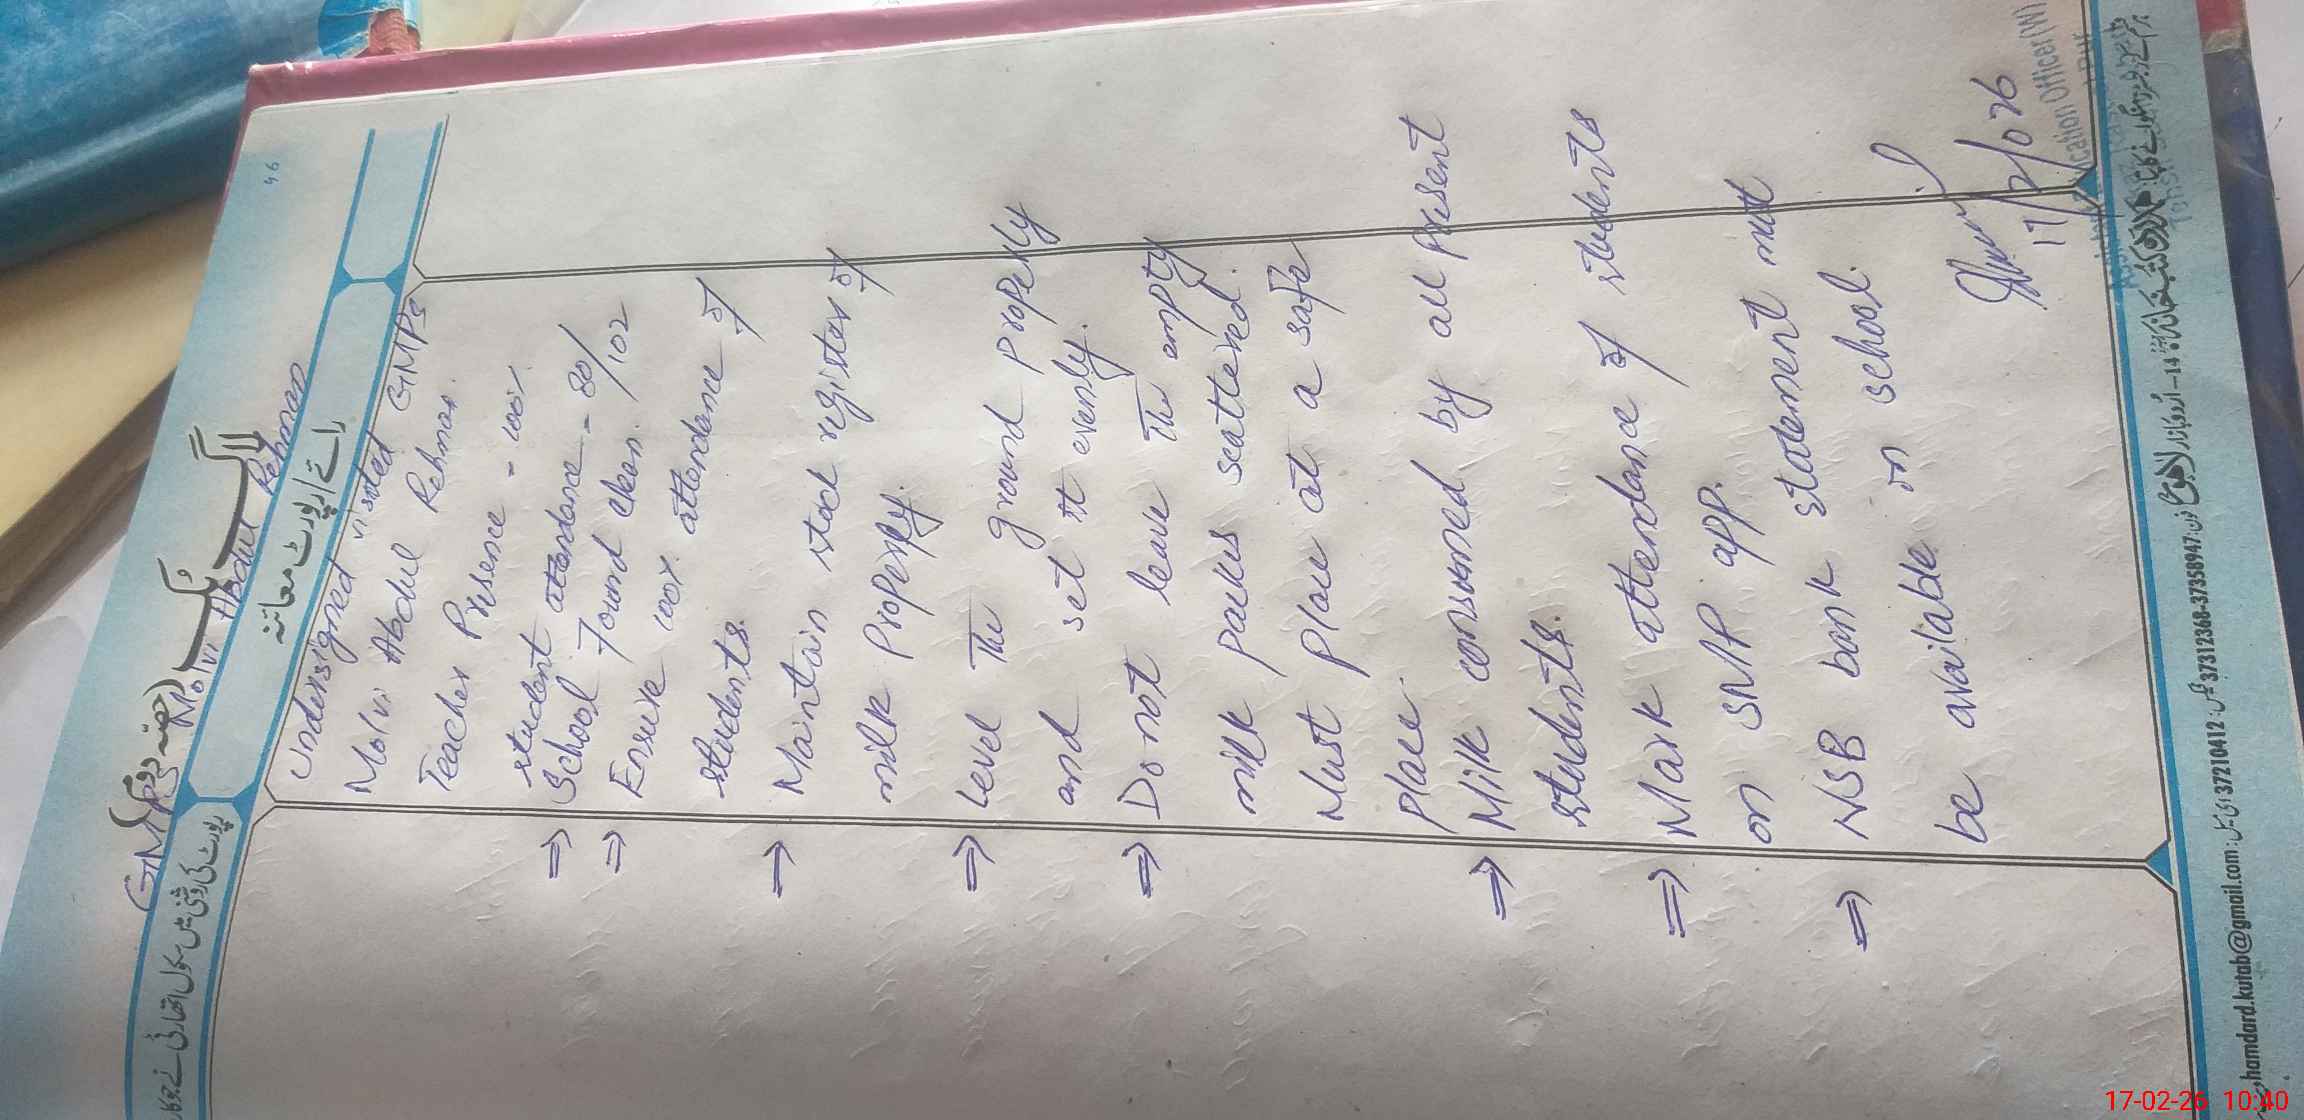 46
لاگ بُک (حصہ دوم)
GMPS Molvi Abdul Rehman
رپورٹ کی روشنی میں سکول اتھارٹی نے جو کا
رائے / رپورٹ معائنہ
Undersigned visited GMPS
Molvi Abdul Rehman.
Teacher Presence - 100%.
student attendance - 80/102
⇒ School Found clean.
⇒ Ensure 100% attendance of
students.
⇒ Maintain stock register of
milk properly.
⇒ Level The ground properly
and set it evenly.
⇒ Do not leave The empty
milk packs scattered.
Must place at a safe
place.
⇒ Milk consumed by all present
students.
⇒ Mark attendance of students
on SMP app.
⇒ NSB bank statement must
be available in school.
17/2/026
cation Officer (W)
hamdard.kutab@gmail.com :ای میل 37210412 :فیکس 37312368-37358947 :فون
17-02-26 10:40